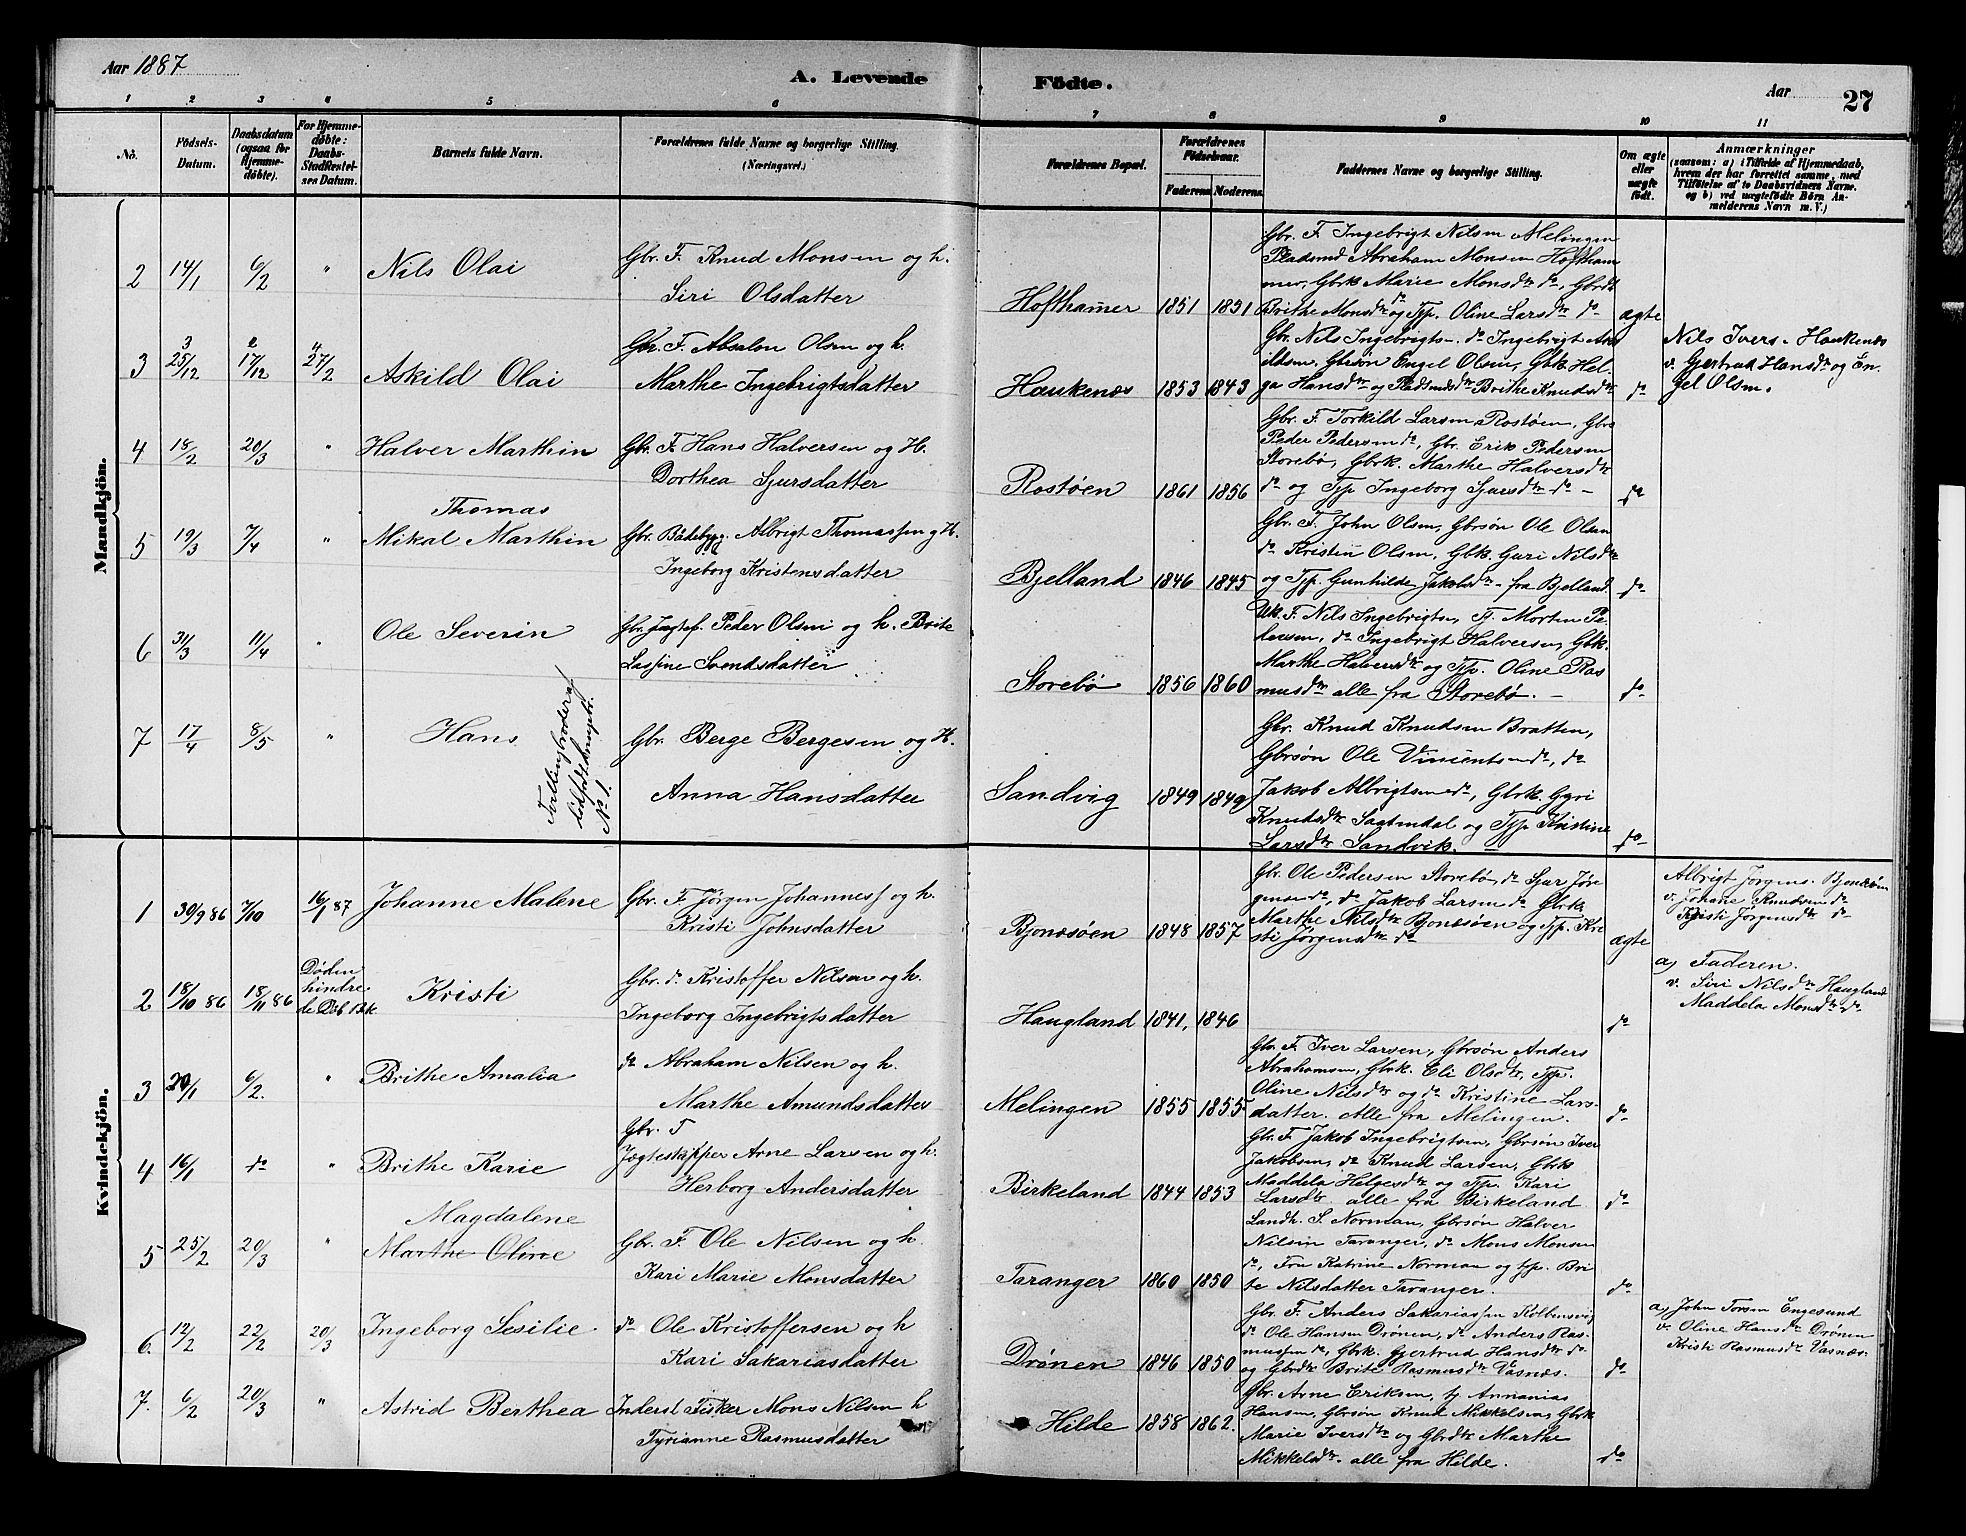 Aar 1887
A. Levende
Födte.
Aar
27
1 2 3 4 5 6 7 8 9 10 11
No.
Födsels-Datum.
Daabsdatum (ogsaa for Hjemmedöbte).
For Hjemmedöbte: Daabs-Stadfæstelses Datum.
Barnets fulde Navn.
Forældrenes fulde Navne og borgerlige Stilling. (Næringsvei.)
Forældrenes Bopæl.
Forældrenes Födselsaar.
Faderens. Moderens.
Faddernes Navne og borgerlige Stilling.
Om ægte eller uægte födt.
Anmærkninger
(saasom: a) i Tilfælde af Hjemmedaab, hvem der har forrettet samme, med Tilföielse af to Daabsvidners Navne. og b) ved uægtefödte Börn Anmelderens Navn m.V.)
Mandkjön.
2 14/1 6/2 " Nils Olai
Gbr. F. Knud Monsen og h.
Siri Olsdatter
Hofthamer 1851 1851
Gbr. F. Ingebrigt Nilsen Melingen
Pladsmd Abraham Monsen Hoftham
mer, Gbrk Marie Monsdtr do, Gbrdt
Brithe Monsdtr do og Tjp. Oline Larsdtr do
ægte
3 25/12 17/12 27/2 Askild Olai
Gbr. F. Absalon Olsen og h.
Marthe Ingebrigtsdatter
Haukenæs 1853 1843
Gbr. Nils Ingebrigts- do Ingebrigt As
kildsen, Gbrsön Engel Olsen, Gbk. Hel-
ga Hansdtr og Pladsmdsdtr Brithe Knudsdtr
do
Nils Ivers. Haukenæs
v. Gjertrud Hansdtr og En-
gel Olsen.
4 18/2 20/3 " Halver Marthin
Gbr. F. Hans Halversen og H.
Dorthea Sjursdatter
Rostøen 1861 1856
Gbr. F. Torkild Larsen Rostøen, Gbrs
Peder Pedersen do, Gbr. Erik Pedersen
Storebø, Gbrk. Marthe Halversdtr
do og Tjp Ingeborg Sjursdtr do -
do
5 19/3 7/4 " Thomas
Mikal Marthin
Gbr. Bådebygg. Albrigt Thomassen og H.
Ingeborg Kristensdatter
Bjelland 1846 1845
Gbr. F. John Olsen, Gbrsön Ole Olsen
do Kristen Olsen, Gbk. Guri Nilsdtr
og Tjp. Gunhilde Jakobsdtr - fra Bjelland.
do
6 31/3 11/4 " Ole Severin
Gbr. Jægtef. Peder Olsen og h. Brite
Lassine Svendsdatter
Storebø 1856 1860
Uk. F. Nils Ingebrigtsen, Tj. Morten Pe
dersen, do Ingebrigt Halversen, Gbk.
Marthe Halversdtr og Tjp. Oline Ras
musdtr alle fra Storebø. -
do
7 17/4 8/5 " Hans
Tvillingbroder af
dødfødte
No 1.
Gbr. Berge Bergesen og H.
Anna Hansdatter
Sandvig 1849 1849
Gbr. Knud Knudsen Bratten,
Gbrsön Ole Vincentsen do, do
Jakob Albrigtsen do, Gbrk. Gyri
Knudsdtr Sagtendal og Tjp Kristine
Larsdtr Sandvik. -
do
Kvindekjön.
1 30/9 86 7/10 16/1 87 Johanne Malene
Gbr. F. Jörgen Johanness og h.
Kristi Johnsdatter
Bjonæsøen 1848 1857
Gbr. Ole Pedersen Storebø, do Sjur Jøre
gensen do, do Jakob Larsen do Gbrk
Marthe Nilsdtr Bjonæsøen og Tjp. Kri
sti Jørgensdtr do
ægte
Albrigt Jørgens. Bjonæsøen
v. Johane Knudsen do
Kristi Jørgensdtr do
2 18/10 86 18/11 86 Døden
hindre-
de
Kristi
Gbr. do Kristoffer Nilsen og h.
Ingeborg Ingebrigtsdatter
Haugland 1841, 1846
do
a) Faderen.
v. Siri Nilsdtr Haugland
Maddela Monsdtr do
3 20/1 6/2. " Brithe Amalia
do Abraham Nilsen og h.
Marthe Amundsdatter
Melingen 1855 1855
Gbr. F. Iver Larsen, Gbrsön Anders
Abrahamsen, Gbrk. Eli Olsdtr, Tjp.
Oline Nilsdtr og do Kristine Lars-
datter. Alle fra Melingen.
do
4 16/1 do " Brithe Karie
Gbr. F
Jægteskipper Arne Larsen og h.
Herborg Andersdatter
Birkeland 1844 1853
Gbr. F. Jakob Ingebrigtsen, Gbrsön Iver
Jakobsen, do Knud Larsen, Gbrk
Maddela Helgesdtr og Tjp. Kari
Larsdtr. alle fra Birkeland
do
5 25/2 20/3 " Magdalene
Marthe Oline
Gbr. F. Ole Nilsen og h.
Kari Marie Monsdatter
Taranger 1860 1850
Landh. S. Norman, Gbrsön Halver
Nilsen Taranger, do Mons Monsen
do, Fru Katrine Norman og tjp. Bri
te Nilsdatter Taranger.
do
6. 12/2 22/2 20/3 Ingeborg Sesilie
do Ole Kristoffersen og h
Kari Sakariasdatter
Drönen 1846 1850
Gbr. F. Anders Sakariassen Kolbensvig
do Ole Hansen Drönen, do Anders Ras-
mussen do, Gbrk. Gjertrud Hansdtr do
og Gbrdtr Brite Rasmusdtr Vasnæs.
do
a) John Torsen Engesund
v. Oline Hansdtr Drönen
Kristi Rasmusdtr Vasnæs.
7. 6/2 20/3 " Astrid Berthea
Inderst Fisker Mons Nilsen h
Tyrianne Rasmusdatter
Hilde 1858 1862.
Gbr. Arne Eriksen, tj Annanias
Hansen, Gbrsön Knud Mikkelsen, Gbrk
Marie Iversdtr og Gbrdtr Marthe
Mikkelsdtr. alle fra Hilde.
do